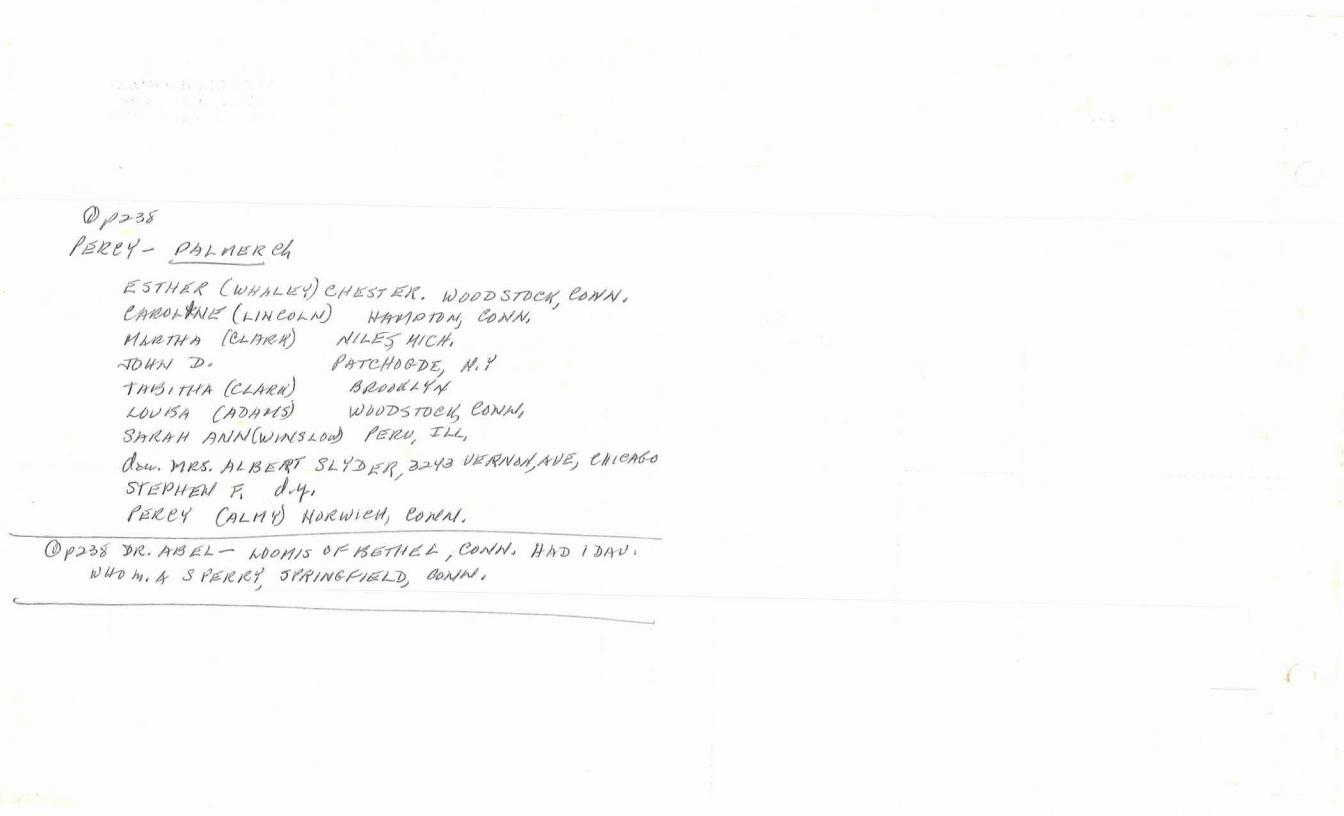 ① p238
PERCY - PALMER Ch
ESTHER (WHALEY) CHESTER. WOODSTOCK, CONN.
CAROLINE (LINCOLN) HAMPTON, CONN.
MARTHA (CLARK) NILES, MICH.
JOHN D. PATCHOGDE, N.Y
TABITHA (CLARK) BROOKLYN
LOUISA (ADAMS) WOODSTOCK, CONN.
SARAH ANN (WINSLOW) PERU, ILL.
dau. MRS. ALBERT SLYDER, 3243 VERNON, AVE, CHICAGO
STEPHEN F. d.y.
PERCY (ALMY) NORWICH, CONN.
① p238 DR. ABEL - LOOMIS OF BETHEL, CONN. HAD 1 DAU.
WHO m. A S PERRY, SPRINGFIELD, CONN.